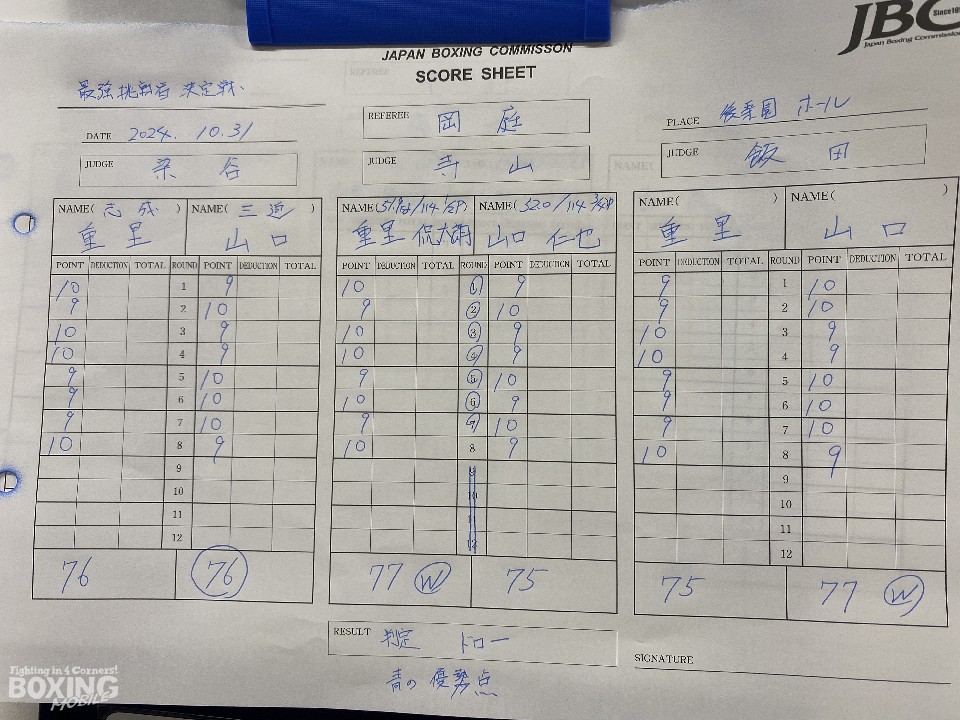 JBC
Since195
Japan Boxing Commission
JAPAN BOXING COMMISSON
SCORE SHEET
最強挑戦者 決定戦
DATE 2024. 10.31
REFEREE 岡 庭
PLACE 後楽園 ホール
JUDGE 染 谷
JUDGE 寺 山
JUDGE 飯 田
NAME( 志 成 ) NAME( 三迫 )
重 里 山 口
NAME( /114 1/2P) NAME( 52.0/114 3/4P
重里 侃太朗 山口 仁也
NAME( ) NAME( )
重 里 山 口
POINT DEDUCTION TOTAL ROUND POINT DEDUCTION TOTAL
10 1 9
9 2 10
10 3 9
10 4 9
9 5 10
9 6 10
9 7 10
10 8 9
9
10
11
12
76 76
POINT DEDUCTION TOTAL ROUND POINT DEDUCTION TOTAL
10 1 9
9 2 10
10 3 9
10 4 9
9 5 10
10 6 9
9 7 10
10 8 9
9
10
11
12
77 W 75
POINT DEDUCTION TOTAL ROUND POINT DEDUCTION TOTAL
9 1 10
9 2 10
10 3 9
10 4 9
9 5 10
9 6 10
9 7 10
10 8 9
9
10
11
12
75 77 W
RESULT 判定 ドロー
青の 優勢点
SIGNATURE
Fighting in 4 Corners!
BOXING
MOBILE